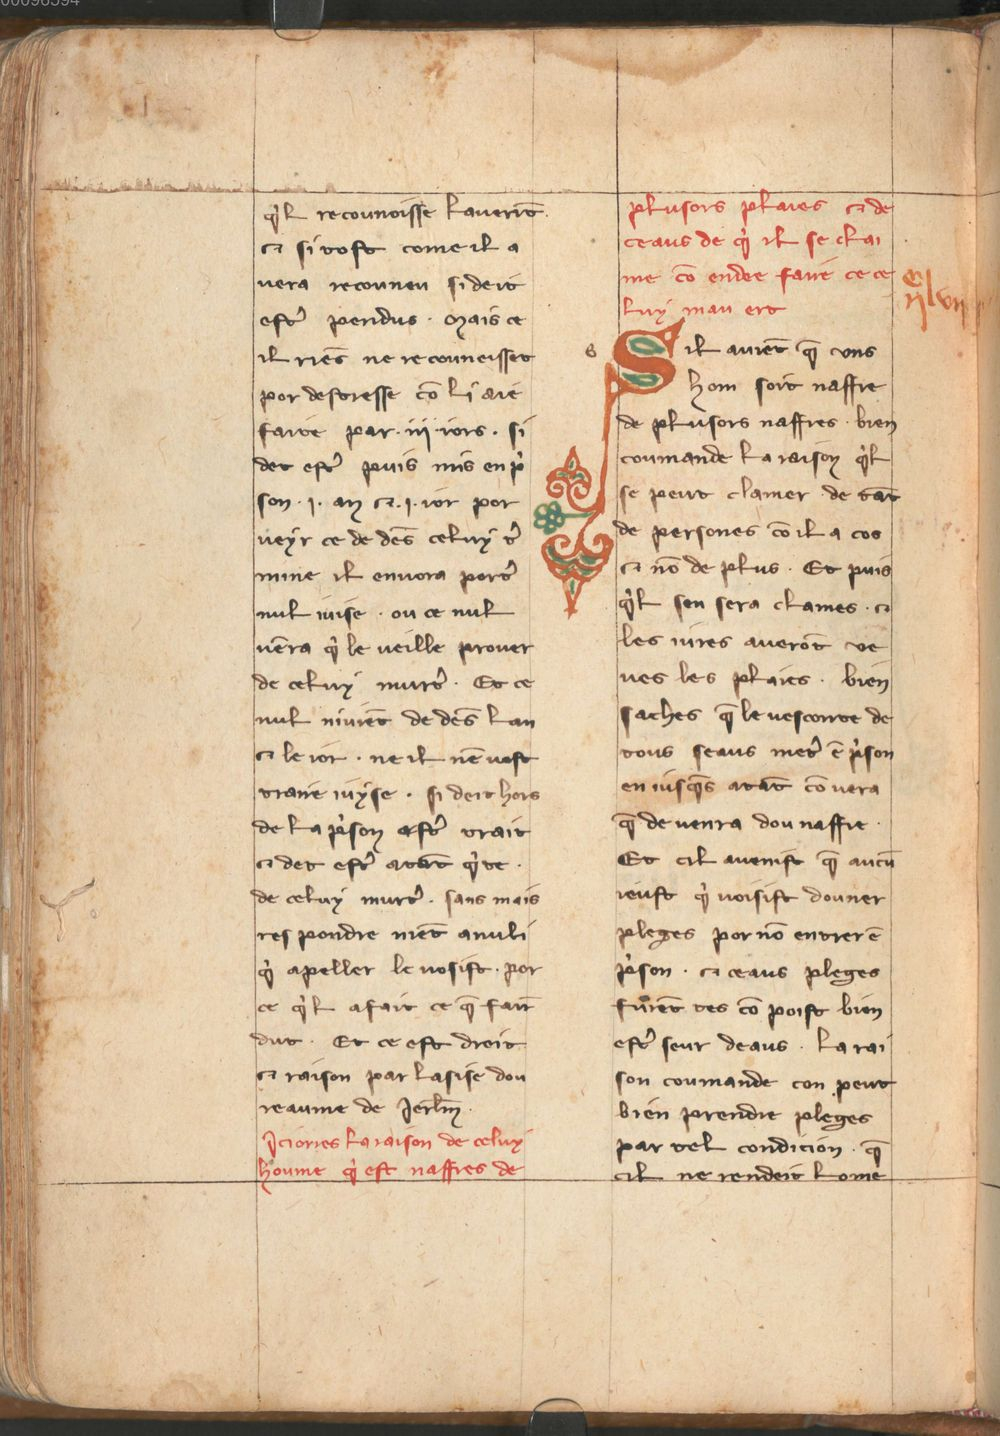 00096394
q̾l reconnoisse la uerite.
⁊ si tost come il a
uera reconneu si deit
est̾ pendus. Mais ce
il riẽs ne reconneisset
por destresse cõ li aie
faite par .iii. iors. si
det est̾ puis mis en p̾
son .i. an ⁊ .i. ior por
ueyr ce de dẽs celuy t̾
mine il enuora port̾
nul iuise. ou ce nul
uẽra q̾ le ueille prouer
de celuy murt̾. Et ce
nul ni uiẽt de dẽs lan
⁊ le ior. ne il nẽ uost
traire iuyse. si deit hors
de la p̾son est̾ trait
⁊ det est̾ atãt q̾te.
de celuy murt̾. sans mais
respondre niẽt a nuli
q̾ apeller le uosist. por
ce q̾l a fait ce q̃ fair̃
dut. Et ce est droit
⁊ raison par lasise dou
reaume de Jerl̃m.
Ici ories la raison de celuy
houme q̾ est naffres de
plusors plaies ⁊ de
ceaus de q̾ il se clai
me cõ en dee faire ce ce
luy mau ert
s
Sil auiẽt q̃ uns
hom soit naffre
de plusors naffres. bien
coumande la raison q̾l
se peut clamer de tãt
de persones cõ il a cos
⁊ nõ de plus. Et puis
q̾l sen sera clames. ⁊
les iures auerõt ve
ues les plaies. bien
saches q̃ le uesconte de
tous seaus met̾ ẽ p̾son
en iusq̃s atãt cõ uera
q̃ deuenra dou naffre.
Et cil auenist q̃ aucũ
ieust q̾ uoisist douner
pleges por nõ entrer ẽ
p̾son. ⁊ ceaus pleges
furẽt tes cõ poist bien
est̾ seur deaus. La rai
son coumande con peut
bien prendre pleges
par tel condicion. q̃
cil ne rendeit lome